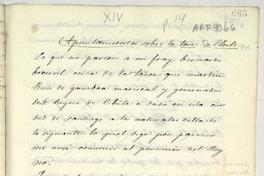 XIV
P 14
265
Apuntamientos sobre la tasa de Chile
Lo que me parece a mi fray bernardo
becerril acerca de la tasa que martin
Ruiz de gamboa mariscal y gobernador
del Reyno de Chile a dado en esta ciu
dad de santiago a los naturales della es
lo siguiente lo qual digo por parecer
me asi conviene al del Rey
no: